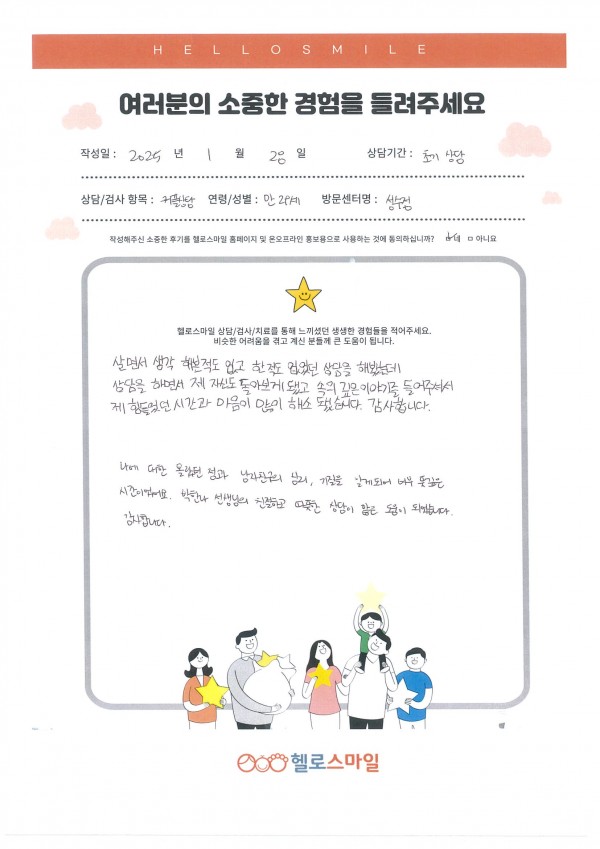 HELLOSMILE
여러분의 소중한 경험을 들려주세요
작성일 : 2025 년 1 월 20 일 상담기간 : 초기 상담
상담/검사 항목 : 커플상담 연령/성별 : 만 24세 방문센터명 : 성수점
작성해주신 소중한 후기를 헬로스마일 홈페이지 및 온오프라인 홍보용으로 사용하는 것에 동의하십니까? 네 ㅁ 아니요
헬로스마일 상담/검사/치료를 통해 느끼셨던 생생한 경험들을 적어주세요.
비슷한 어려움을 겪고 계신 분들께 큰 도움이 됩니다.
살면서 생각 해본적도 없고 한적도 없었던 상담을 해봤는데
상담을 하면서 제 자신도 돌아보게 됐고 속의 깊은이야기를 들어주셔서
제 힘들었던 시간과 마음이 많이 해소 됐습니다. 감사합니다.
나에 대한 몰랐던 점과 남자친구의 심리, 기질을 알게되어 너무 뜻깊은
시간이었어요. 박한나 선생님의 친절하고 따뜻한 상담이 많은 도움이 되었습니다.
감사합니다.
헬로스마일